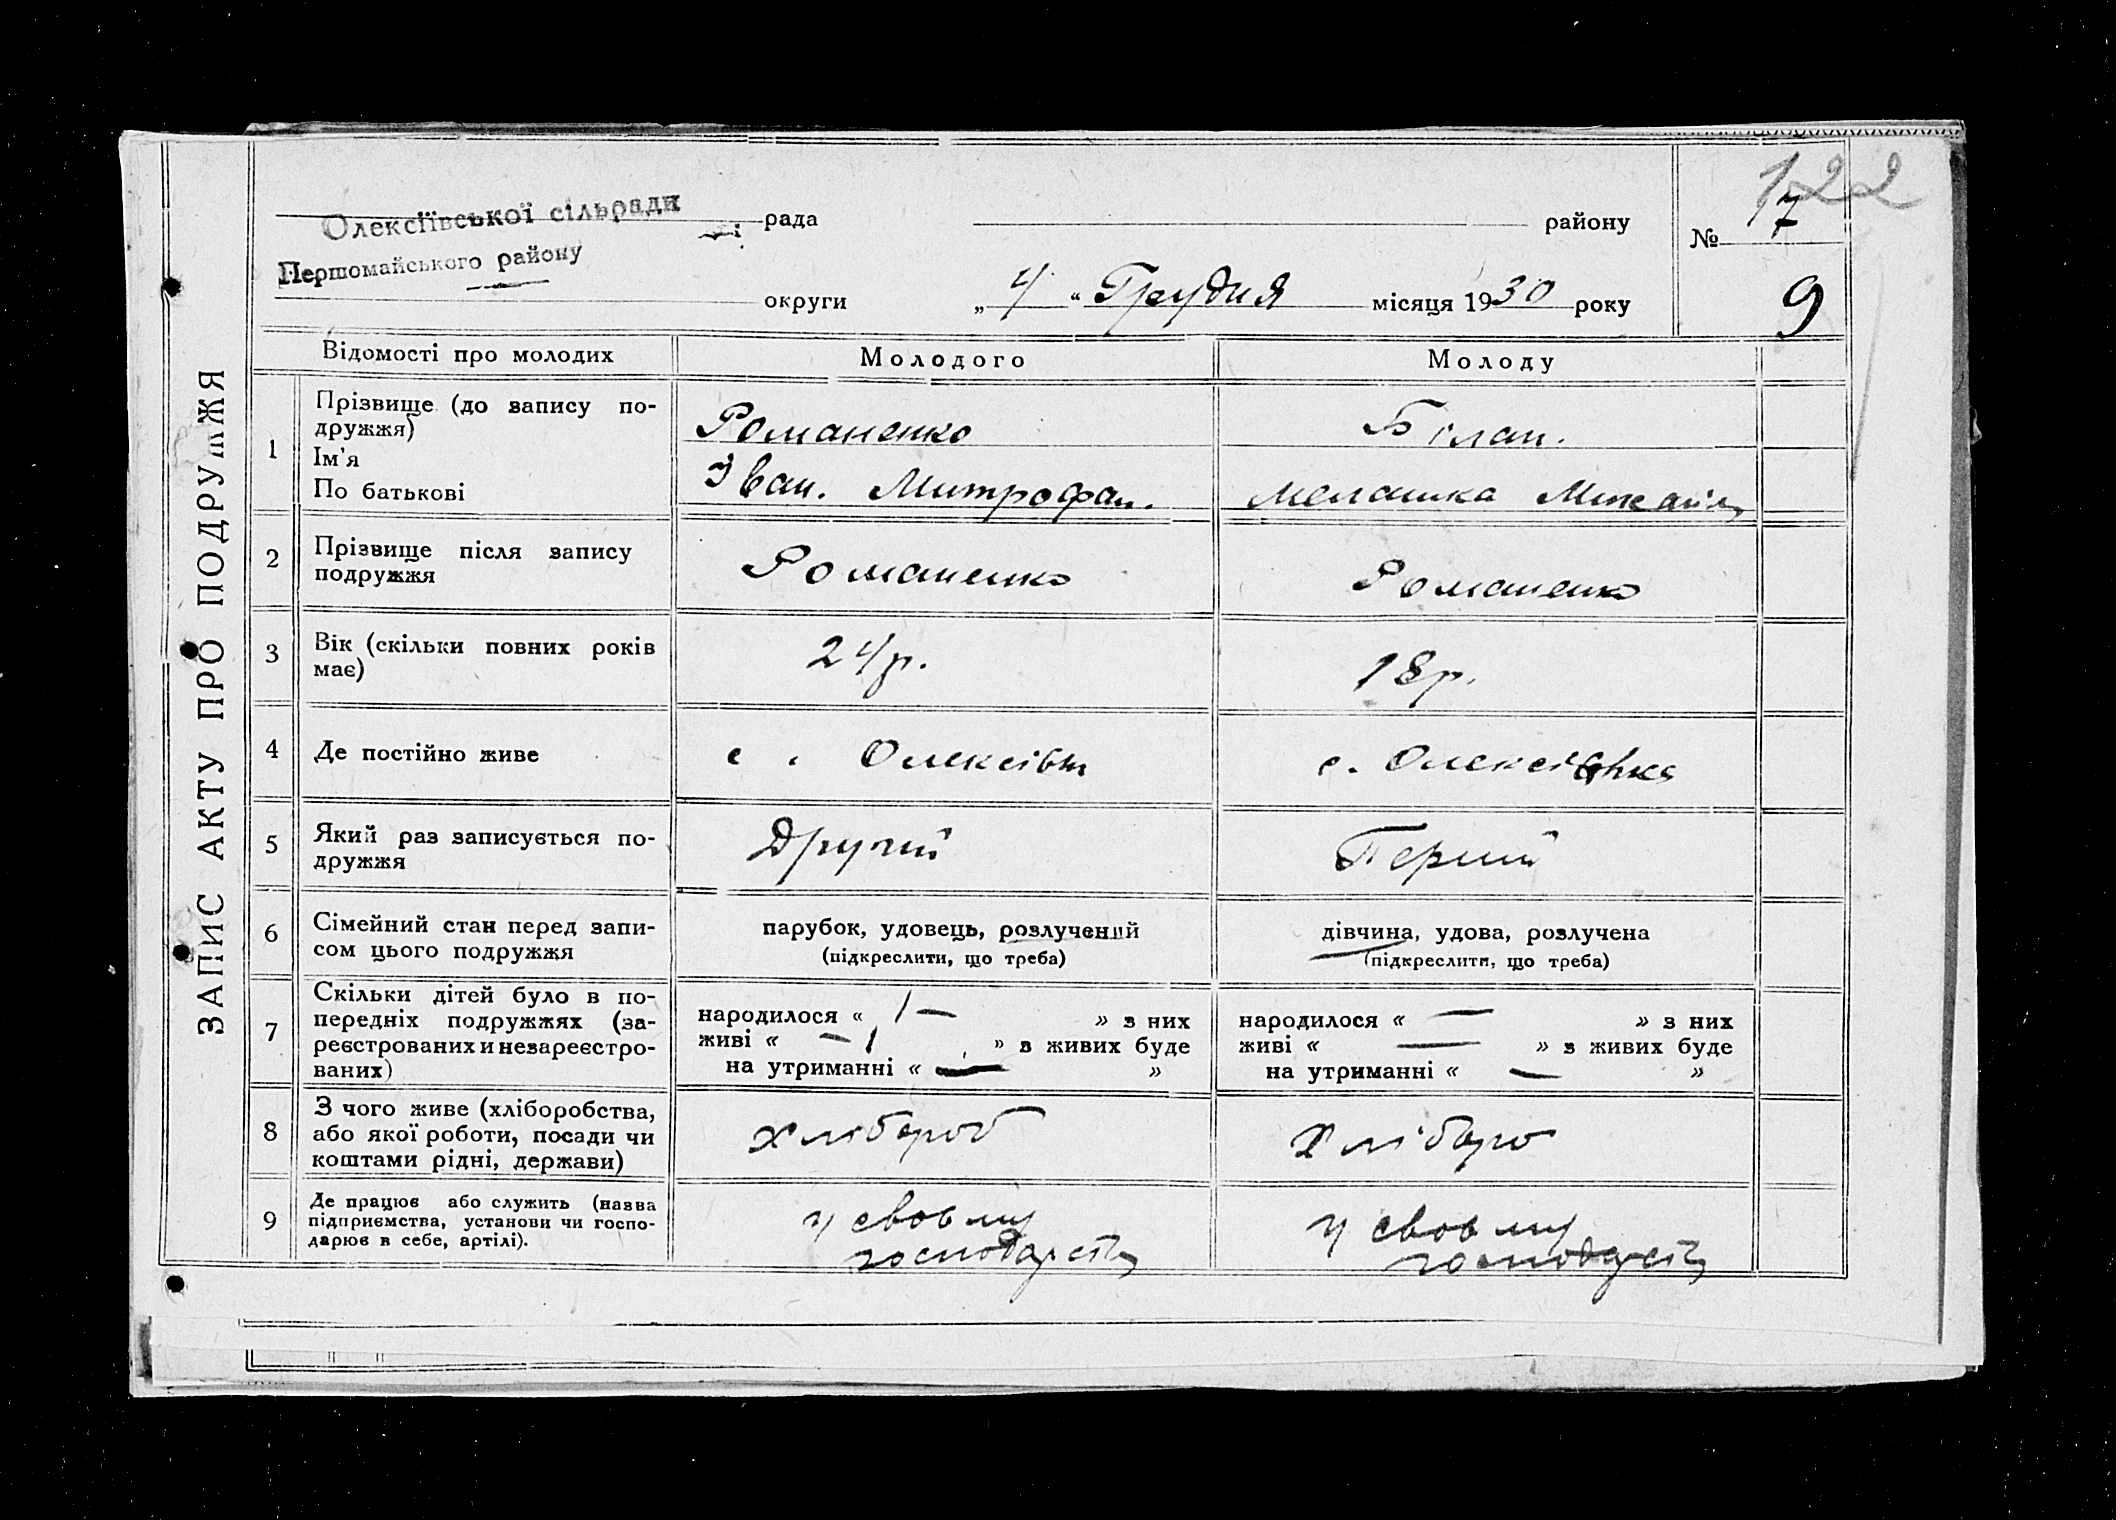 122
Олексіївської сільради рада району № 17
Першомайського району
округи „ 4 “ Грудня місяця 1930 року 9
ЗАПИС АКТУ ПРО ПОДРУЖЖЯ
Відомості про молодих Молодого Молоду
1 Прізвище (до запису по-
дружжя) Романенко Білан.
Ім'я
По батькові Іван. Митрофан. Мелашка Михайл
2 Прізвище після запису
подружжя Романенко Романенко
3 Вік (скільки повних років
має) 24р. 18р.
4 Де постійно живе с. Олексівк с. Олексівка
5 Який раз записується по-
дружжя Другий Перший
6 Сімейний стан перед запи-
сом цього подружжя
парубок, удовець, розлучений дівчина, удова, розлучена
(підкреслити, що треба) (підкреслити, що треба)
7 Скільки дітей було в по-
передніх подружжях (за-
реєстрованих и незареєстро-
ваних)
народилося « 1 — » з них
живі « — 1 » з живих буде
на утриманні « — »
народилося « — » з них
живі « — » з живих буде
на утриманні « — »
8 З чого живе (хліборобства,
або якої роботи, посади чи
коштами рідні, держави)
хлібороб хліборо
9 Де працює або служить (назва
підприємства, установи чи госпо-
дарює в себе, артілі).
у своєму
господарстві
у своєму
господарстві